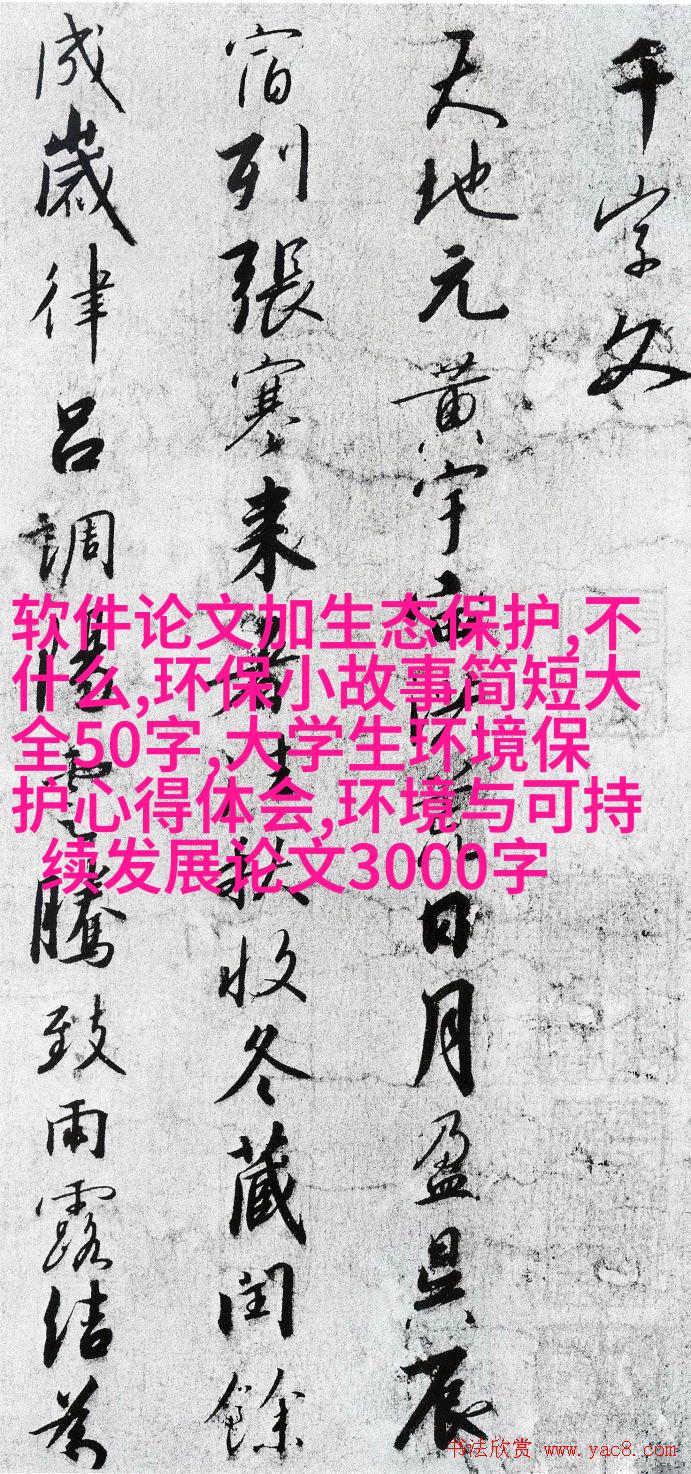 千字文
天地元黄宇日月盈昃辰
宿列張寒来暑秋收冬藏閏餘
成歲律吕調陽騰致雨露結為
软件论文加生态保护,不
什么,环保小故事简短大
全50字,大学生环境保
护心得体会,环境与可持
续发展论文3000字
书法欣赏 www.yac8.com